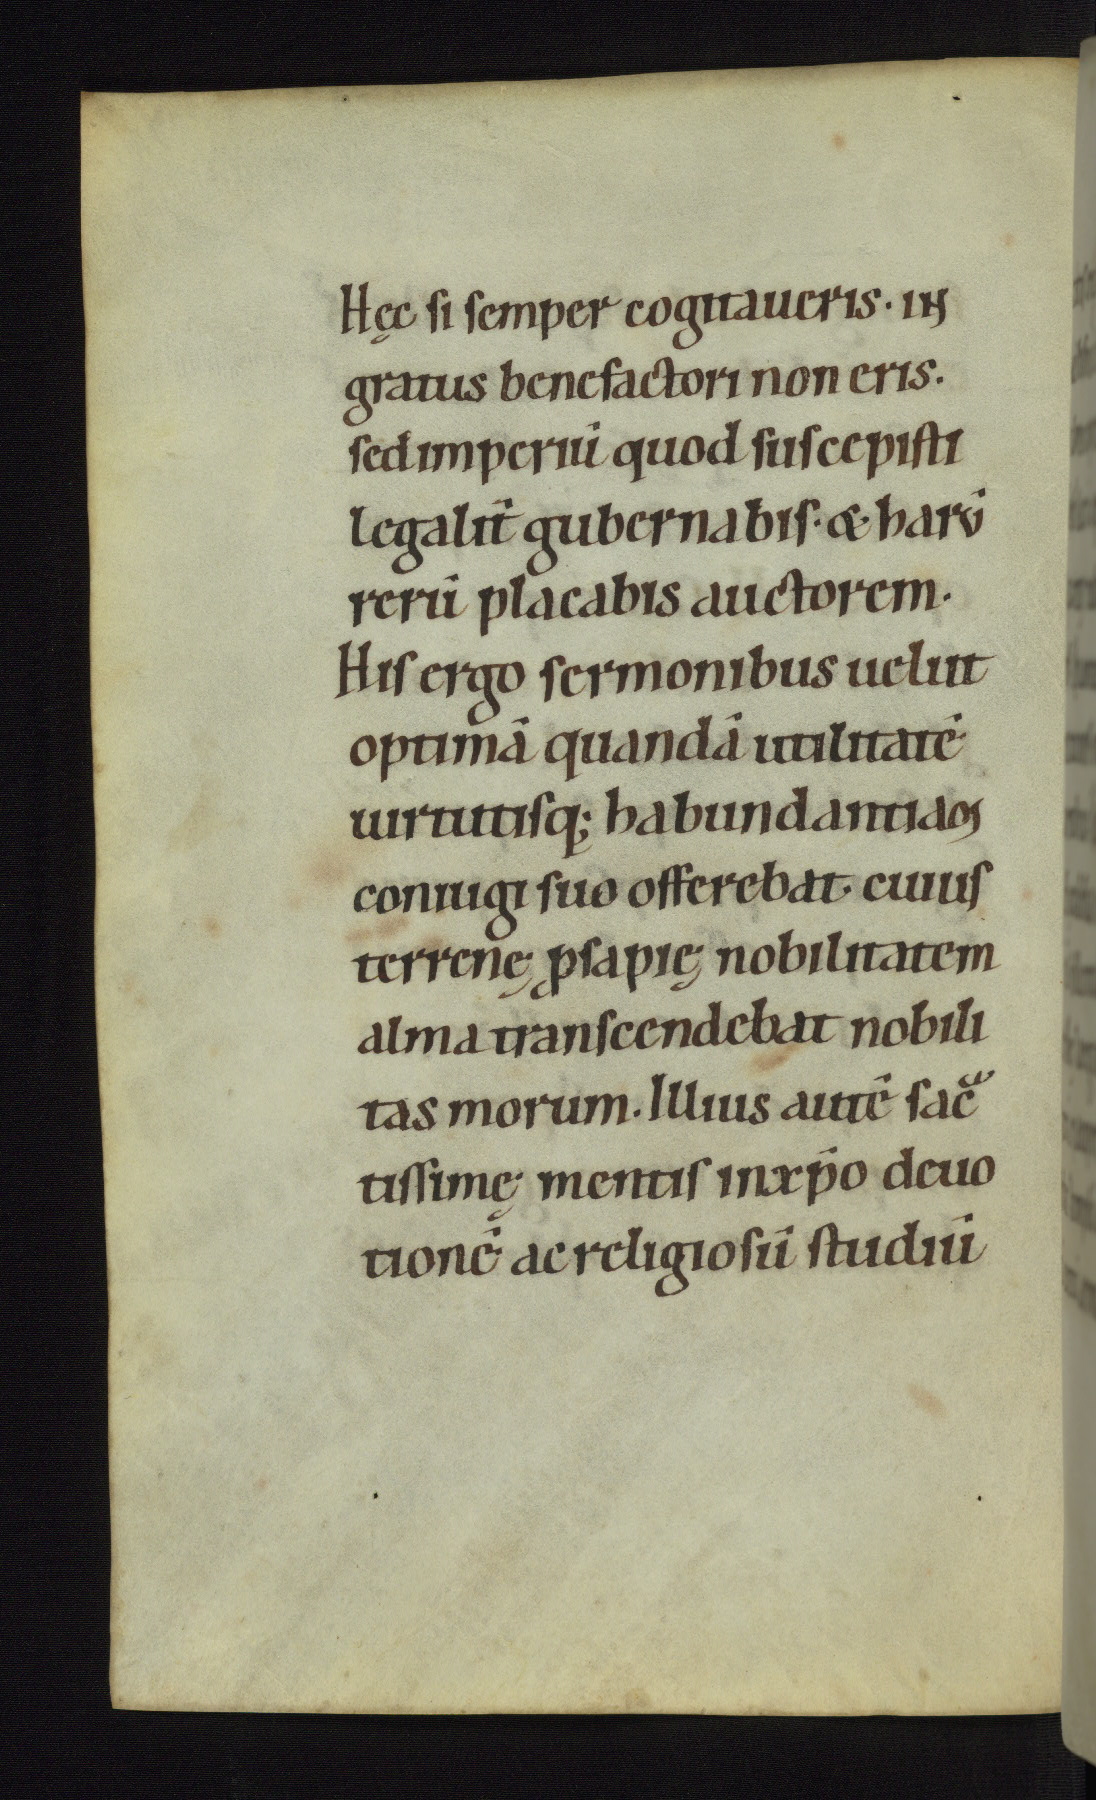 Hęc si semper cogitaueris. in
gratus benefactori non eris.
sed imperiū quod suscepisti
legalit̄ gubernabis. & harū
rerū placabis auctorem.
His ergo sermonibus uelut
optimā quandā utilitatē
uirtutisq; habundantiam
coniugi suo offerebat. cuius
terrenę ꝓsapię nobilitatem
alma transcendebat nobili
tas morum. Illius autē sac̄
tissimę mentis in xp̄o deuo
tionē ac religiosū studiū